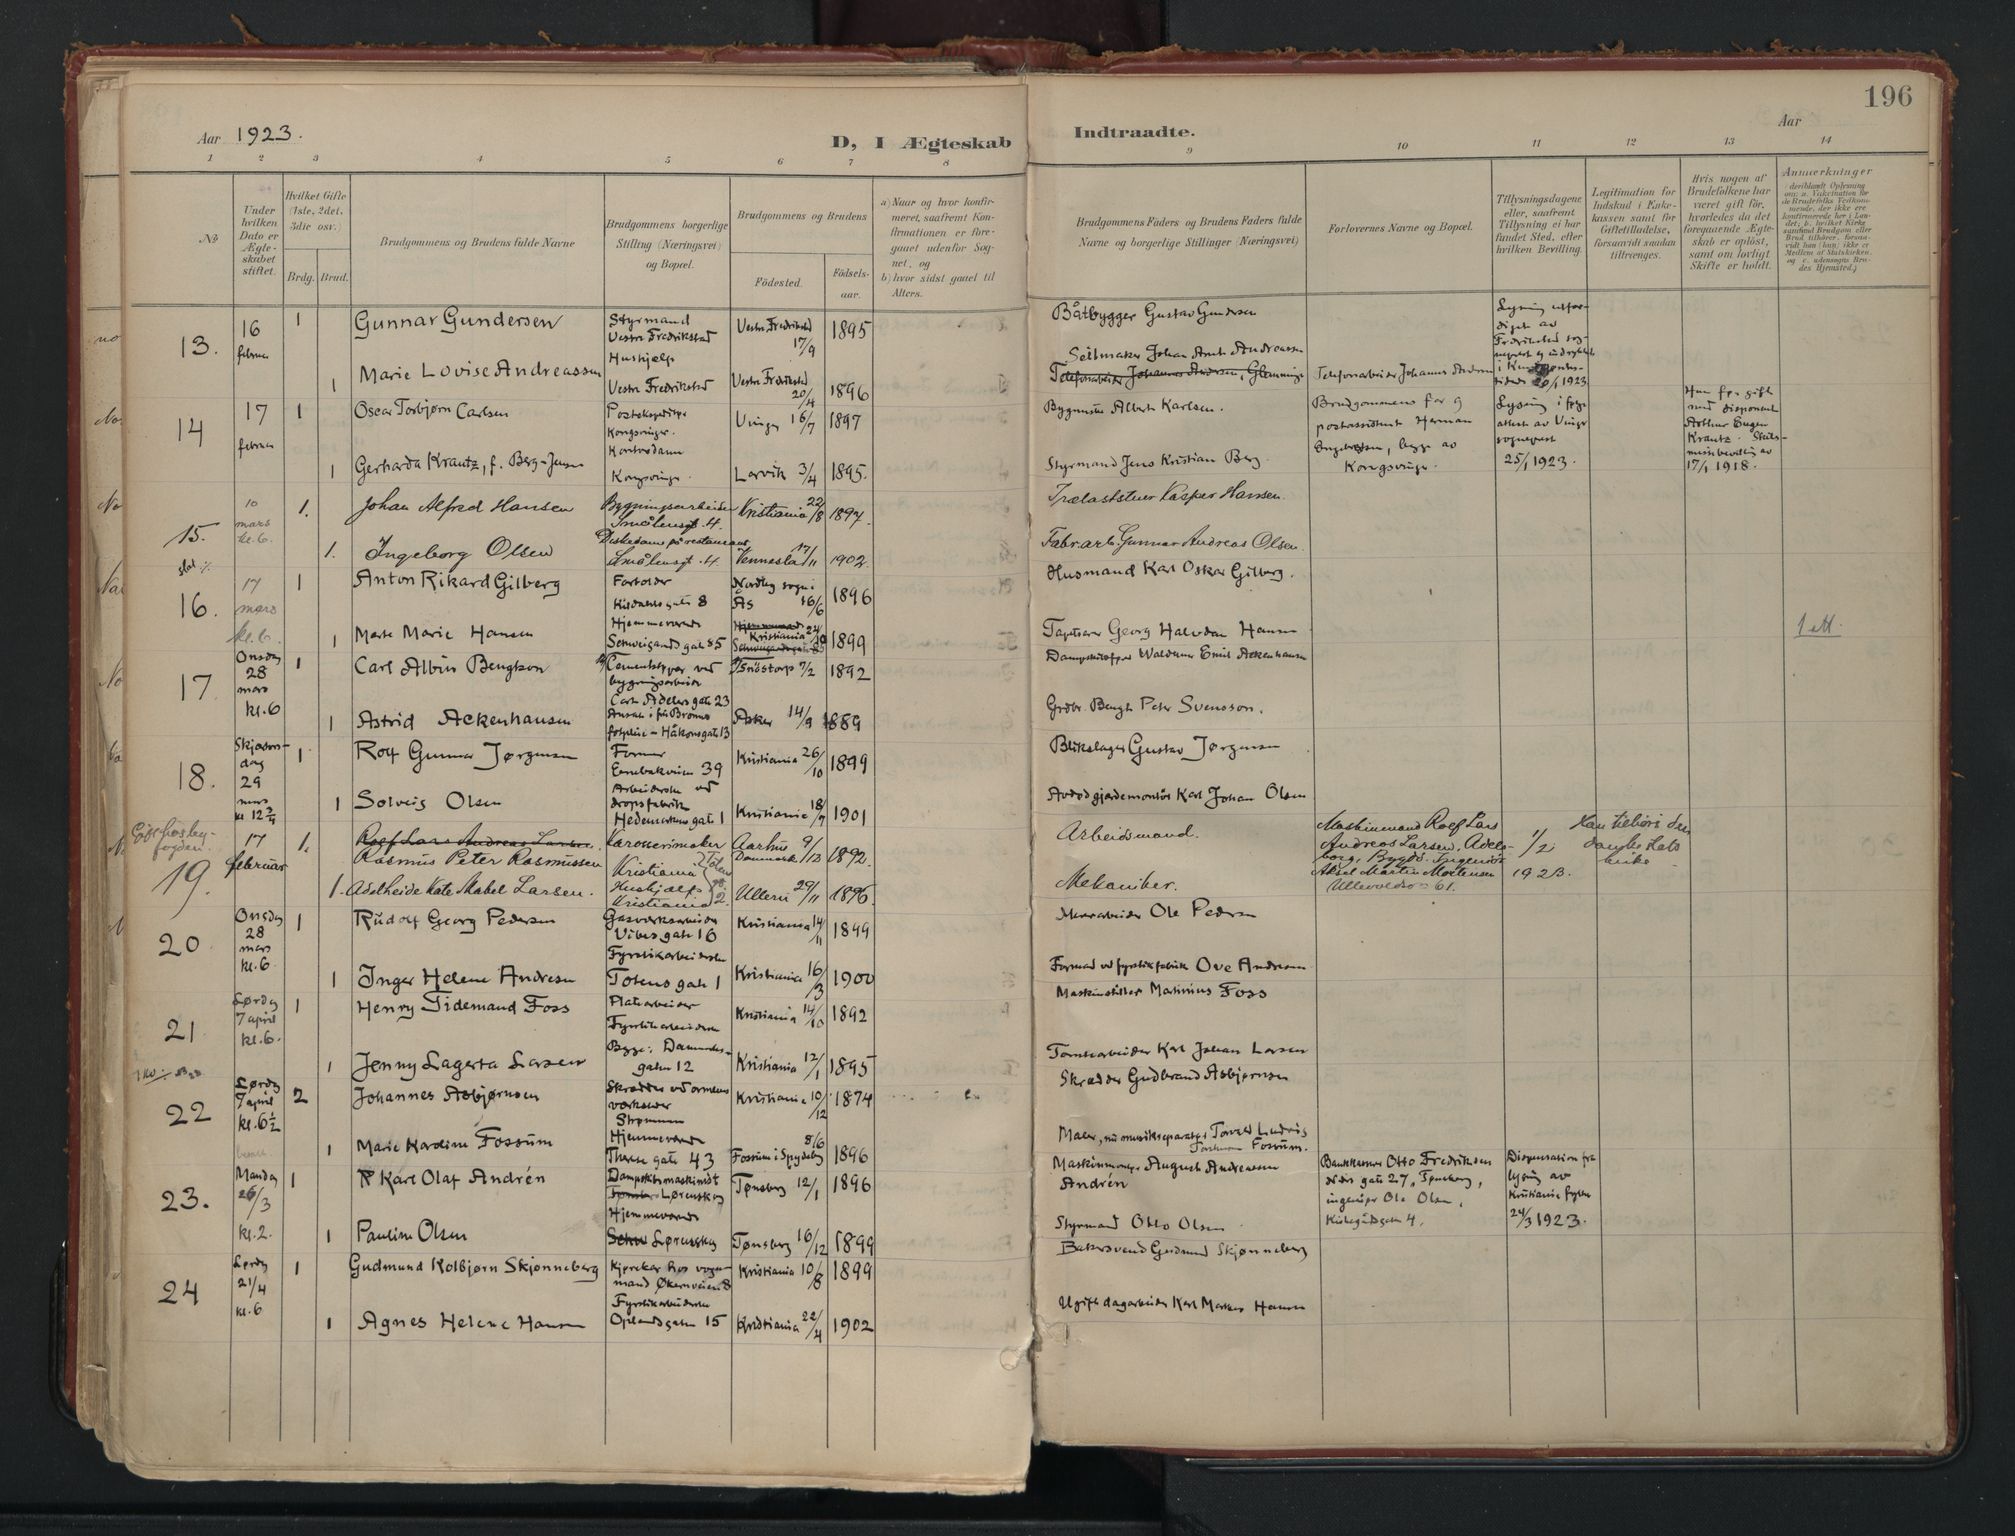 196
Aar 1923.
D, I Ægteskab Indtraadte.
Aar
1 2 3 4 5 6 7 8 9 10 11 12 13 14
No
Under hvilken Dato er Ægteskabet stiftet.
Hvilket Gifte (1ste, 2det, 3die osv.)
Brdg. Brud.
Brudgommens og Brudens fulde Navne
Brudgommens borgerlige Stilling (Næringsvei) og Bopæl.
Brudgommens og Brudens
Födested. Födsels-aar.
a) Naar og hvor konfirmeret, saafremt Konfirmationen er foregaaet udenfor Sognet, og
b) hvor sidst gaaet til Alters.
Brudgommens Faders og Brudens Faders fulde Navne og borgerlige Stillinger (Næringsvei)
Forlovernes Navne og Bopæl.
Tillysningsdagene eller, saafremt Tillysning ei har fundet Sted, efter hvilken Bevilling.
Legitimation for Indskud i Enkekassen samt for Giftetilladelse, forsaavidt saadan tiltrænges.
Hvis nogen af Brudefolkene har været gift för, hvorledes da det foregaaende Ægteskab er oplöst, samt om lovligt Skifte er holdt.
Anmærkninger
13. 16 februar 1 Gunnar Gundersen Styrmand Vestre Fredrikstad Vestre Fredrikstad 17/9 1895 Båtbygger Gustav Gundersen
1 Marie Lovise Andreassen Hushjælp Vestre Fredrikstad Vestre Fredrikstad 20/4 1896 Seilmaker Johan Andreassen
Telefonarbeider Johannes Andersen, Glemminge
Telefonarbeider Johannes Andersen
20/1 1923
14 17 februar 1 Oscar Torbjørn Carlsen Postekspeditør Kongsvinger. Vinger 16/7 1897 Albert Karlsen.
Brudgommens far og postassistent Herman, begge av Kongsvinger.
Lysning i følge attest av Vinger sogneprest 25/1 1923.
1 Gerharda Krantz, f. Berg-Jensen Kontordame Kongsvinger Larvik 3/4 1895. Styrmand Jens Kristian Berg.
Hun før gift med disponent Arthur Eugen Krantz. Skilsmissebevilling av 17/1 1918.
15. 10 mars kl. 6. 1. Johan Alfred Hansen Bygningsarbeider Smålensgt. 4. Kristiania 22/8 1897. Trælaststuer Kasper Hansen.
1. Ingeborg Olsen Diskedame på restaurant Smålensgt. 4. Vennesla 17/11 1902. Fabr.arb. Gunnar Andreas Olsen.
16. 17 mars kl. 6. 1 Anton Rikard Gilberg Forvalter gate 8 Nordby sogn i Ås 16/6 1896 Husmand Karl Oskar Gilberg.
1 Marte Marie Hansen Hjemmeværende Schweigaards gate 85 Kristiania 24/10 1899 Tapetserer Georg Halvdan Hansen
17. Onsdag 28 mars kl. 6 1 Carl Albin Bengtson Cementstøper ved bygningsarbeide Cort Adelers gate 23 Snöstorp 7/2 1892 Dampskibsfører Waldemar Emil Ackenhausen
1 Astrid Ackenhausen Håkonsgate 13 Asker 14/9 1889 Grdbr. Bengt Peter Svensson.
18. Skjærtorsdag 29 mars kl. 12 3/4 1 Rolf Gunnar Jørgensen Former Enebakveien 39 Kristiania 26/10 1899 Blikslager Gustav Jørgensen
1 Solveig Olsen Arbeiderske ved dropsfabrik Hedemarkens gate 1 Kristiania 18/7 1901 Avdød gjørdemontør Karl Johan Olsen
19. Gift hos byfogden. 17 februar 1. Roelf Lars Andreas Larsen.
Rasmus Peter Rasmussen Karosserimaker Kristiania Aarhus Danmark 9/12 1892. Arbeidsmand.
Maskinmand Roelf Lars Andreas Larsen, Bygdø. Ingeniør Aksel Martin Mortensen Ullevoldsv. 61.
1/2 1923.
Han tilhører den danske kirke
1. Adelheide Kate Mabel Larsen. Hushjælp Kristiania Ullern 29/11 1896. Mekaniker.
20. Onsdag 28 mars kl. 6. 1 Rudolf Georg Pedersen Gasverksarbeider Vibes gate 16 Kristiania 14/11 1899 Murarbeider Ole Pedersen
1 Inger Helene Andresen Fyrstikarbeiderske Totens gate 1 Kristiania 16/3 1900 Formand ved fyrstikfabrik Ove Andresen
21. Lørdag 7 april kl. 6. 1 Henry Tidemand Foss Platearbeider Kristiania 14/10 1892 Maskinstiller Matinius Foss
1 Jenny Lagerta Larsen Fyrstikarbeiderske Begge: gaten 12 Kristiania 12/1 1895 Tomtearbeider Karl Johan Larsen
22 Lørdag 7 april kl. 6½ 2 Johannes Asbjørnsen Skrædder Strømmen Kristiania 10/12 1874 Skrædder Gudbrand Asbjørnsen
1 Marie Kardine Fossum Hjemmeværende Therese gate 43 Fossum i Spydeberg 8/6 1896 Maler, nu musikreparatør Torvald Ludvig Fossum.
23. Mandag 26/3 kl. 2. 1 Karl Olaf Andrén Dampskibsmaskinist Lørenskog Tønsberg 12/1 1896 Maskinmontør August Andreassen Andrén
Otto Fredriksen gate 27, Tønsberg, ingeniør Ole Olsen, Kirkegårdsgaten 4.
Dispensation fra lysning av Kristiania 24/3 1923.
1 Pauline Olsen Hjemmeværende Lørenskog Tønsberg 16/12 1899 Styrmand Otto Olsen
24 Lørdag 21/4 kl. 6 1 Gudmund Kolbjørn Skjønneberg Kjørekar hos vognmand Økernveien 8 Kristiania 10/8 1899 Bakersvend Gudmund Skjønneberg
1 Agnes Helene Hansen Fyrstikarbeiderske Oplandsgaten 15 Kristiania 22/4 1902 Ugift dagarbeider Karl Markus Hansen